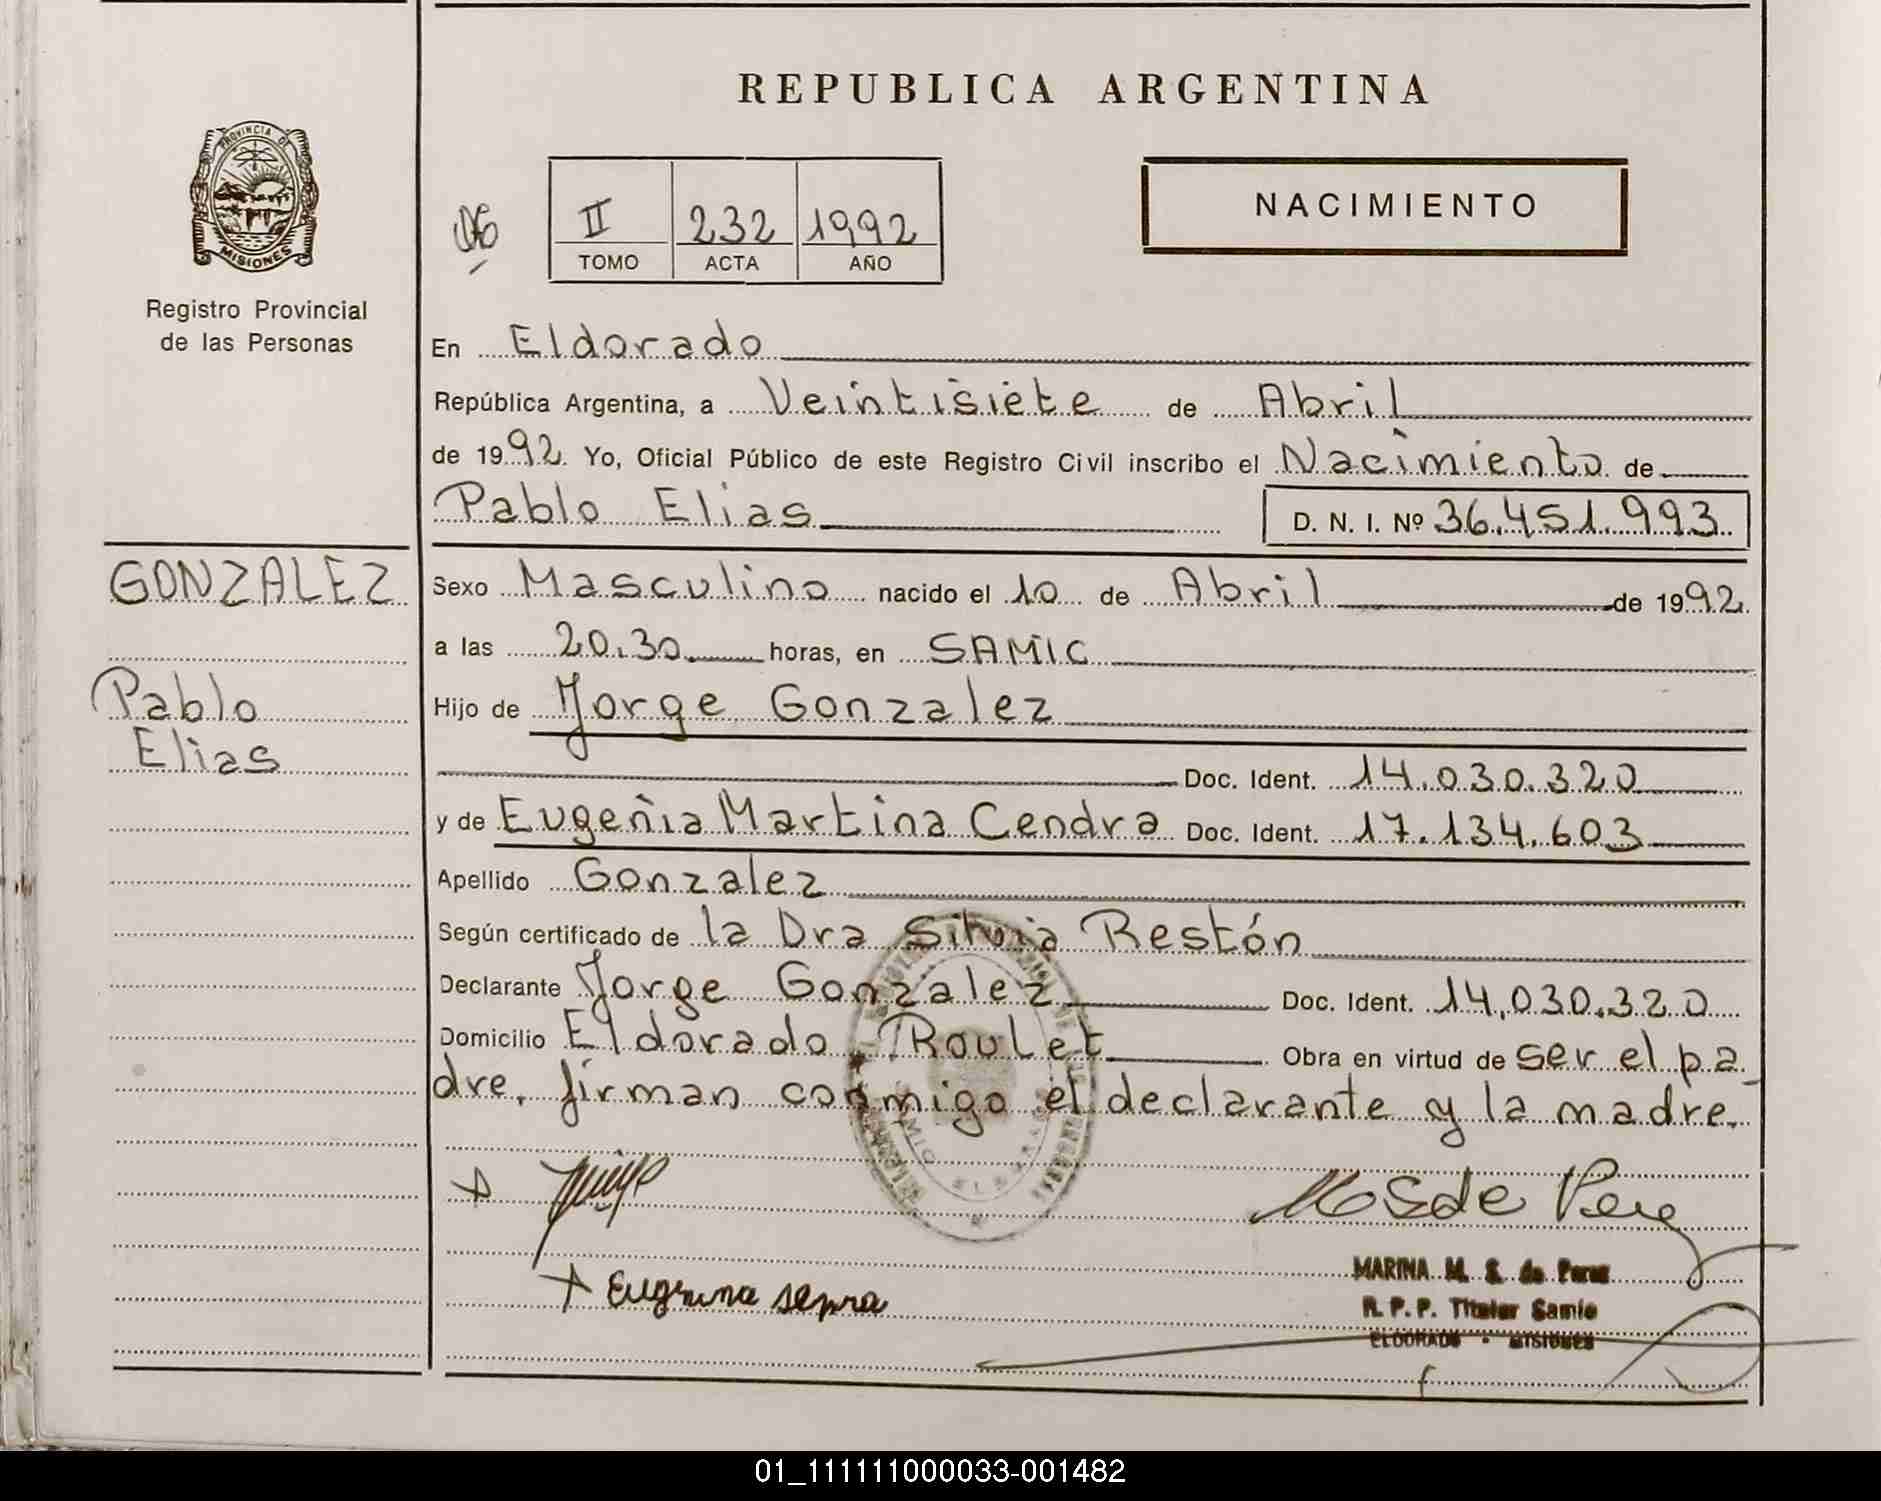 REPUBLICA ARGENTINA
PROVINCIA DE
MISIONES
Registro Provincial
de las Personas
II 232 1992
TOMO ACTA AÑO
NACIMIENTO
En Eldorado
República Argentina, a Veintisiete de Abril
de 1992. Yo, Oficial Público de este Registro Civil inscribo el Nacimiento de
Pablo Elias D. N. I. Nº 36.451.993
GONZALEZ
Pablo
Elias
Sexo Masculino nacido el 10 de Abril de 1992
a las 20.30 horas, en SAMIC
Hijo de Jorge Gonzalez
Doc. Ident. 14.030.320
y de Eugenia Martina Cendra Doc. Ident. 17.134.603
Apellido Gonzalez
Según certificado de la Dra Silvia Restón
Declarante Jorge Gonzalez Doc. Ident. 14.030.320
Domicilio Eldorado, Roulet Obra en virtud de ser el pa_
dre, firman conmigo el declarante y la madre.
MARINA M. S. de Perez
R. P. P. Titular Samic
ELDORADO - MISIONES
01_111111000033-001482